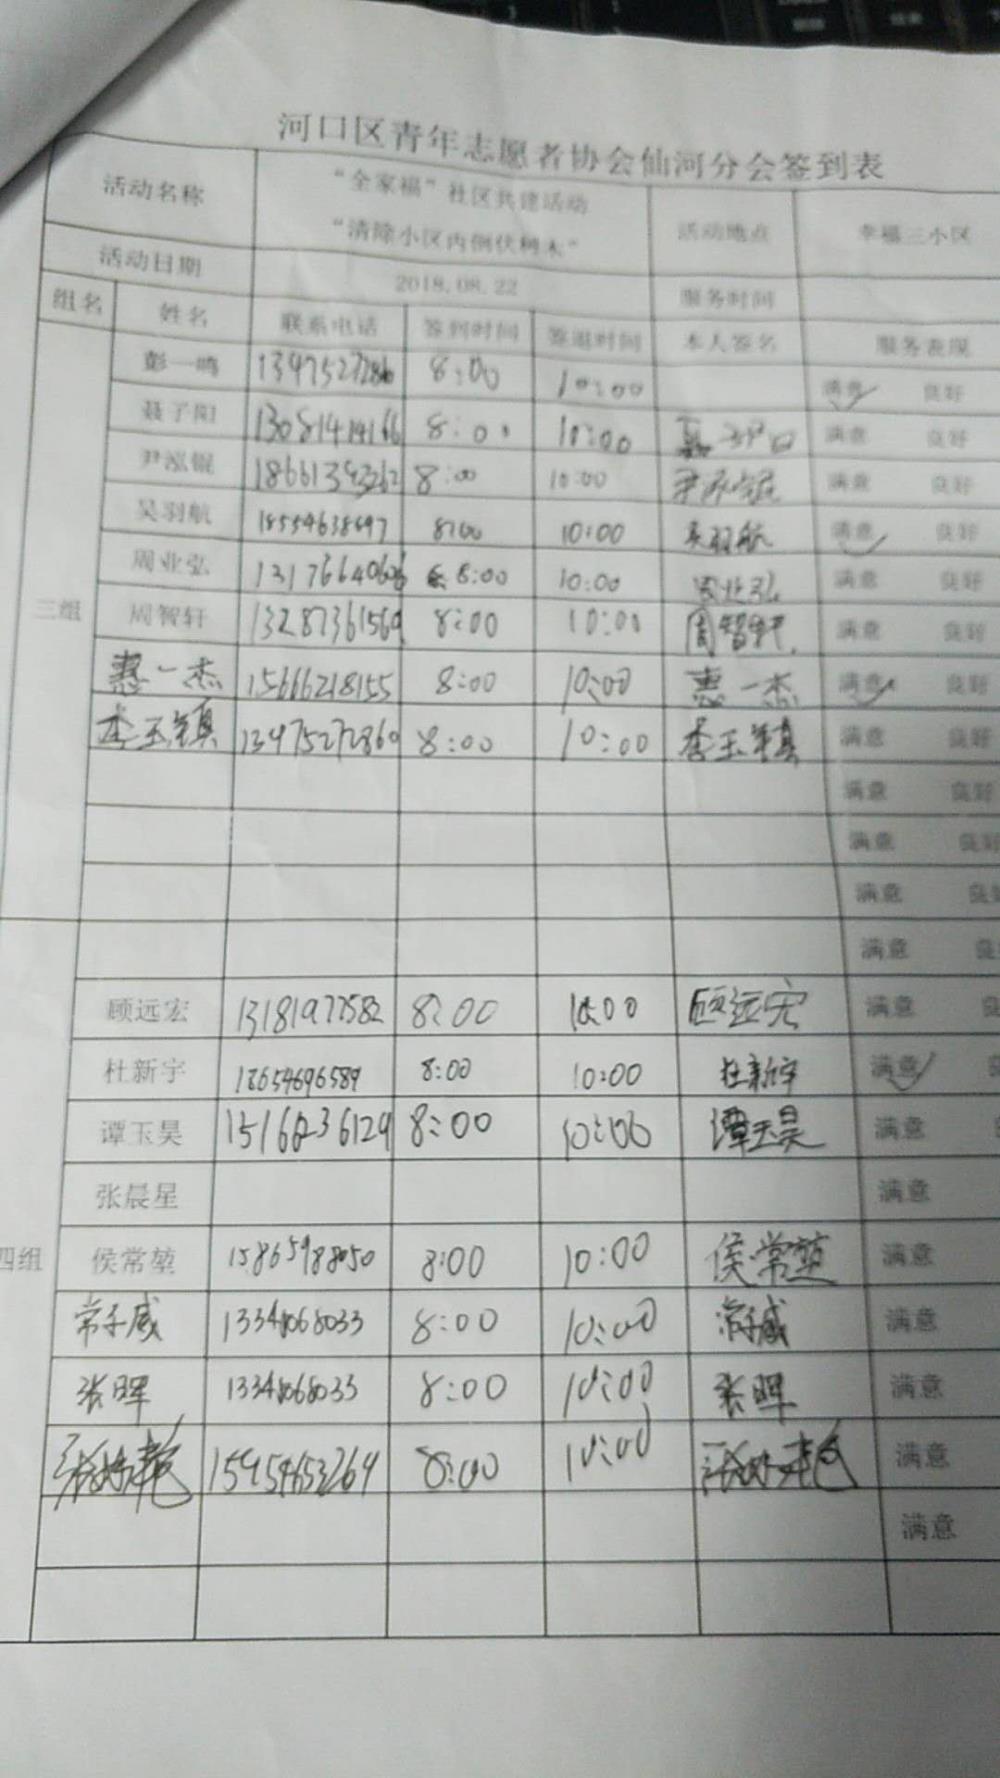 河口区青年志愿者协会仙河分会签到表
活动名称 "全家福"社区共建活动 "清除小区内倒伏树木" 活动地点 幸福三小区
活动日期 2018.08.22 服务时间
组名 姓名 联系电话 签到时间 签退时间 本人签名 服务表现
彭一鸣 8:00 10:00 满意 良好
聂子阳 13081414166 8:00 10:00 满意 良好
尹泓锟 8:00 10:00 满意 良好
吴羽航 8:00 10:00 吴羽航 满意 良好
周业弘 8:00 10:00 周业弘 满意 良好
三组 周智轩 13287361569 8:00 10:00 周智轩 满意 良好
惠一杰 15666218155 8:00 10:00 惠一杰 满意 良好
李玉镇 13475272860 8:00 10:00 李玉镇 满意 良好
满意 良好
满意 良好
满意 良
满意 良
顾远宏 13181977582 8:00 10:00 顾远宏 满意 良
杜新宇 18654696589 8:00 10:00 杜新宇 满意
谭玉昊 8:00 10:00 谭玉昊 满意
张晨星 满意
四组 侯常堃 15865988050 8:00 10:00 侯常堃 满意
常子威 8:00 10:00 常子威 满意
张晖 8:00 10:00 张晖 满意
15954653264 8:00 10:00 满意
满意